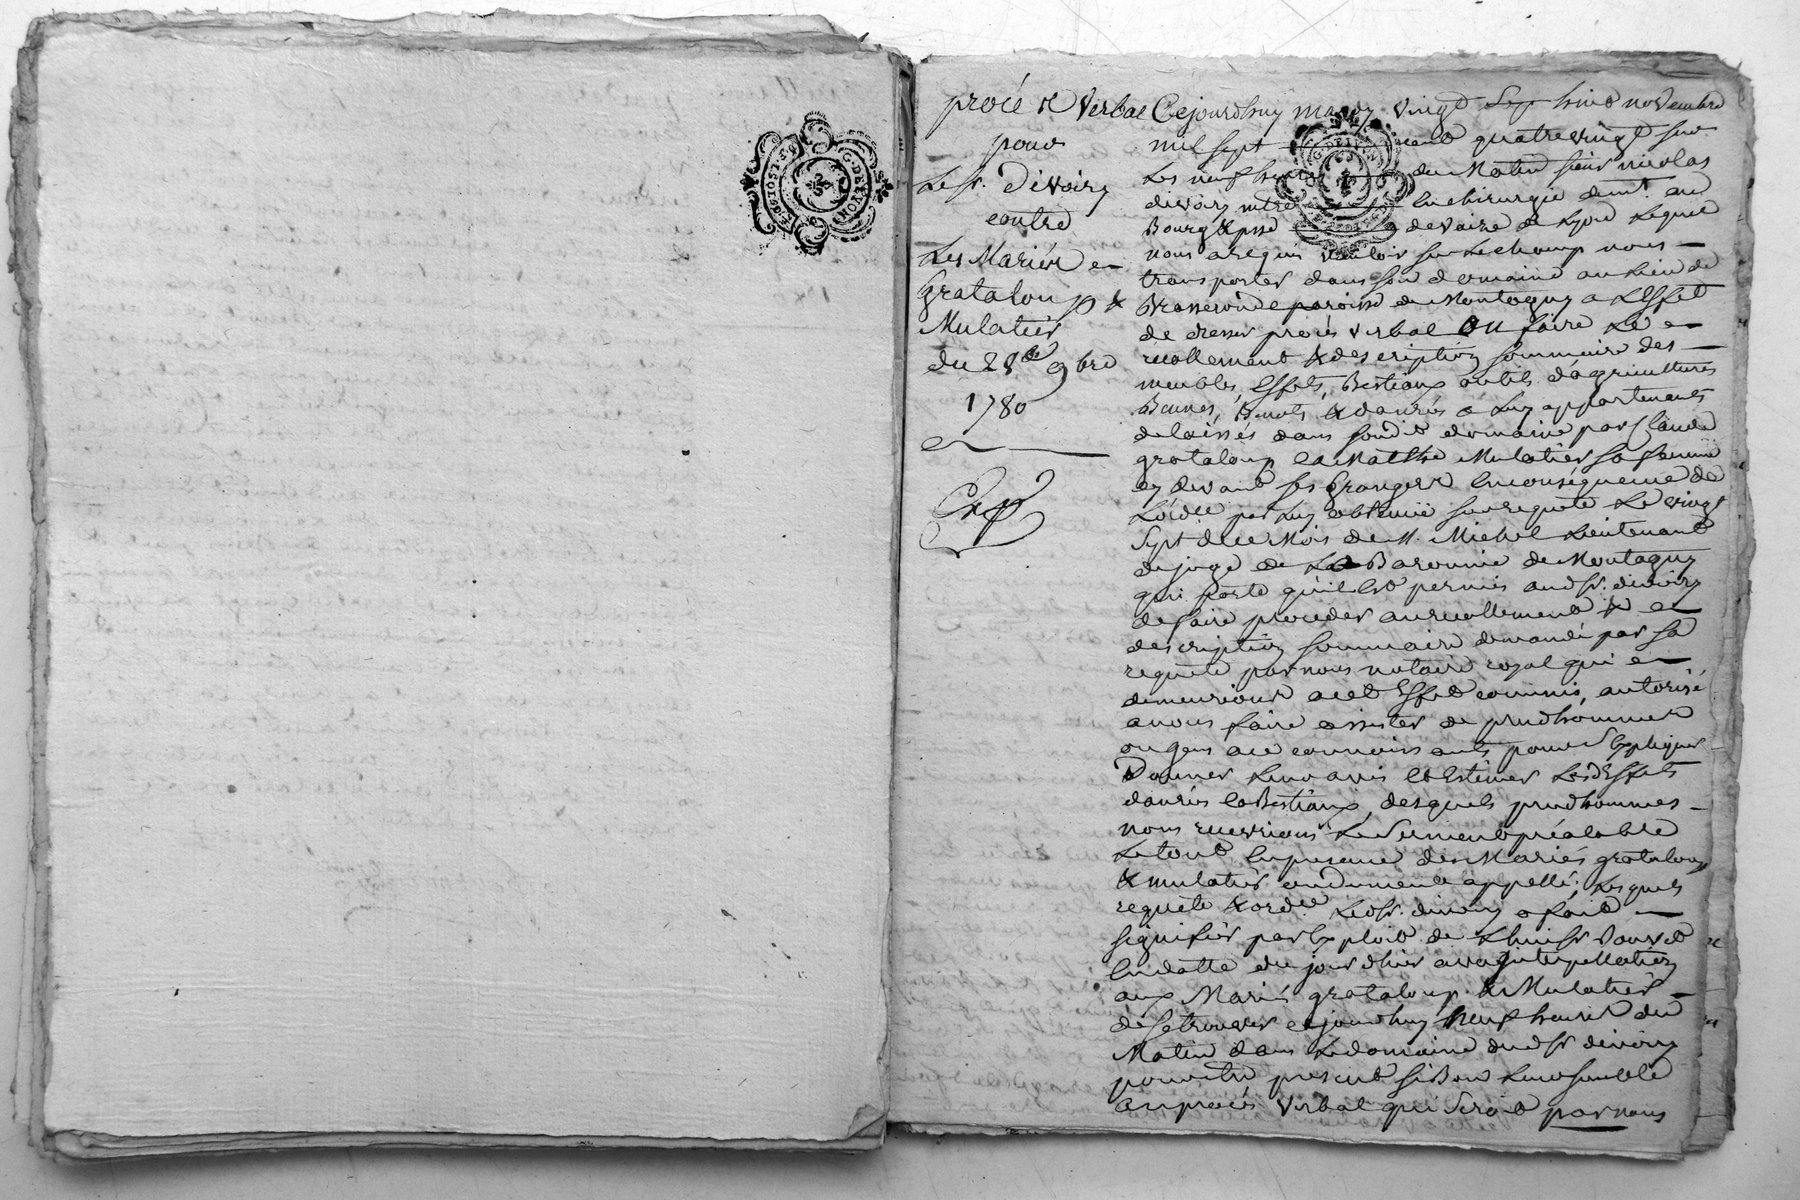 procé & Verbal
pour
Le Sr. Divoiry
contre
Les Mariés
Grataloup &
Mulatier
du 28e 9bre
1780
Cejourdhuy mardy vingt huit novembre
mil sept cent quatrevingt sur
Les neuf heures du Matin sieur nicolas
divoiry mtre En chirurgie demt. au
Bourg de Vaise de Lyon Lequel
nous a requis vouloir sur Le champ nous
transporter dans son domaine au Lieu de
paroisse de Montagny a L'Effet
de dresser procés verbal ou faire Le
recollement & description sommaire des
meubles, Effets, Bestiaux outils d'agricultures
Bennes, & danrés a Luy appartenants
delaissés dans son dit domaine par Claude
grataloup et Mulatier sa femme
cy devant ses Grangers En conséquence de
L'ordce par Luy obtenüe sur requete Le vingt
Sept de ce Mois de M. Michel Lieutenant
de juge de La Baronnie de Montagny
qui porte qu'il Est permis aud Sr. divoiry
de faire proceder au recollement &
description sommaire demandé par sa
requete par nous notaire royal qui
demeurions a cet Effet commis, autorisé
a nous faire assister de prudhommes
ou gens a ce connoissants pour Expliquer
Donner Leur avis et Estimer Lesd Effets
danrés et Bestiaux, desquels prudhommes
nous recevrions Le Serment préalable
Le tout En presence des Mariés grataloup
& mulatier ou dument appellé; Lesquels
requete & ordce Led Sr. divoiry a fait
signifier par Exploit de L'huissr
En datte du jour d'hier avec interpellation
aux Mariés grataloup & Mulatier
de se trouver cejourdhuy neuf heures du
Matin dans Le domaine dud Sr divoiry
pour être present si Bon Leur semble
au procés verbal qui seroit par nous